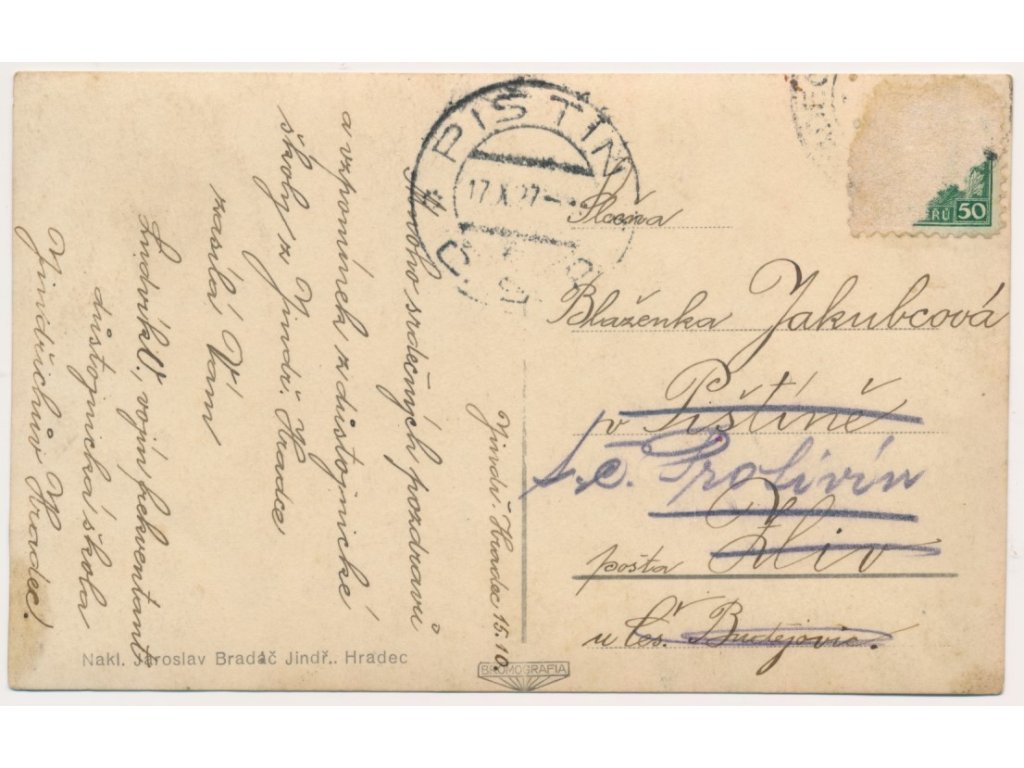 Jindř. Hradec 15.10.
Mnoho srdečných pozdravů
a vzpomínek z důstojnické
školy z Jindř. Hradce
zasílá Vám
Ludvík V., vojín frekventant
důstojnická škola
Jindřichův Hradec.
PIŠTÍN
17.X.27
Slečna
Blaženka Jakubcová
v Pištíně
Protivín
pošta Zliv
u Čes. Budějovic.
RŮ 50
Nakl. Jaroslav Bradáč Jindř.. Hradec
BROMOGRAFIA